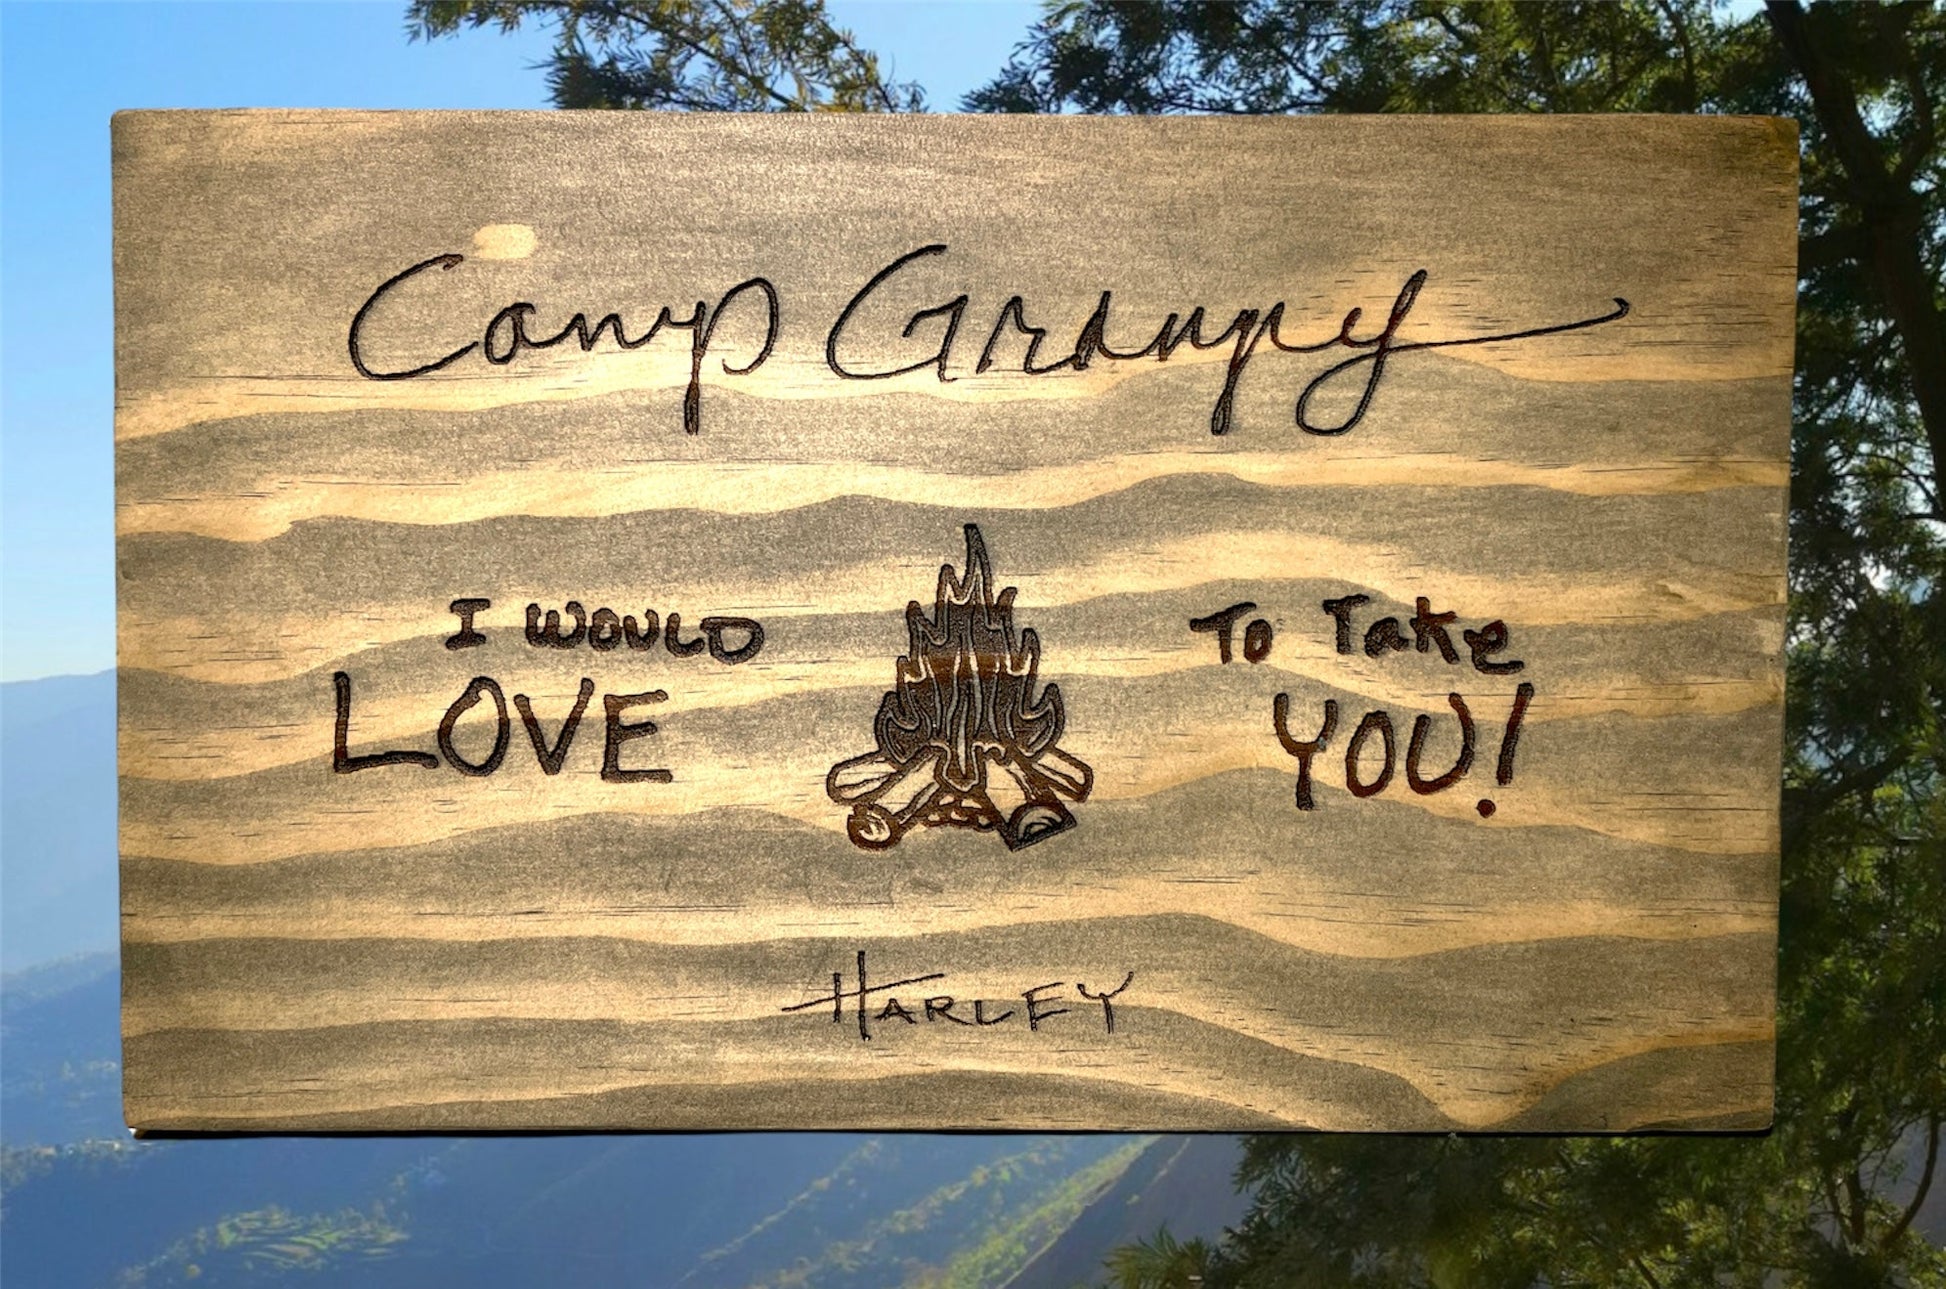 Camp Grampy
I WOULD
LOVE
To Take
YOU!
HARLEY